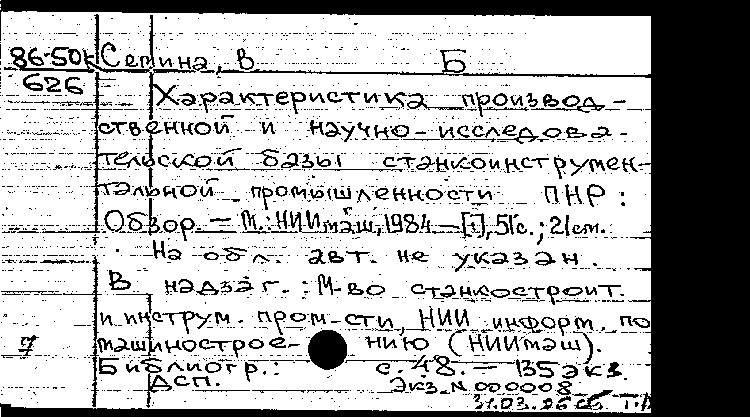 86-50к Сепина, В Б
626
Характеристика производ-
ственной и научно-исследова-
тельской базы станкоинструмен-
тальной промышленности ПНР:
Обзор. – М.: НИИмаш, 1984. – [1], 51с.; 21см.
На обл. авт. не указан.
В надзаг.: М-во станкостроит.
и инструм. пром-сти, НИИ информ. по
7 машинострое- нию (НИИмаш).
Библиогр.: с. 48. – 135 экз.
ДСП. Экз. N 000008
31.03.86